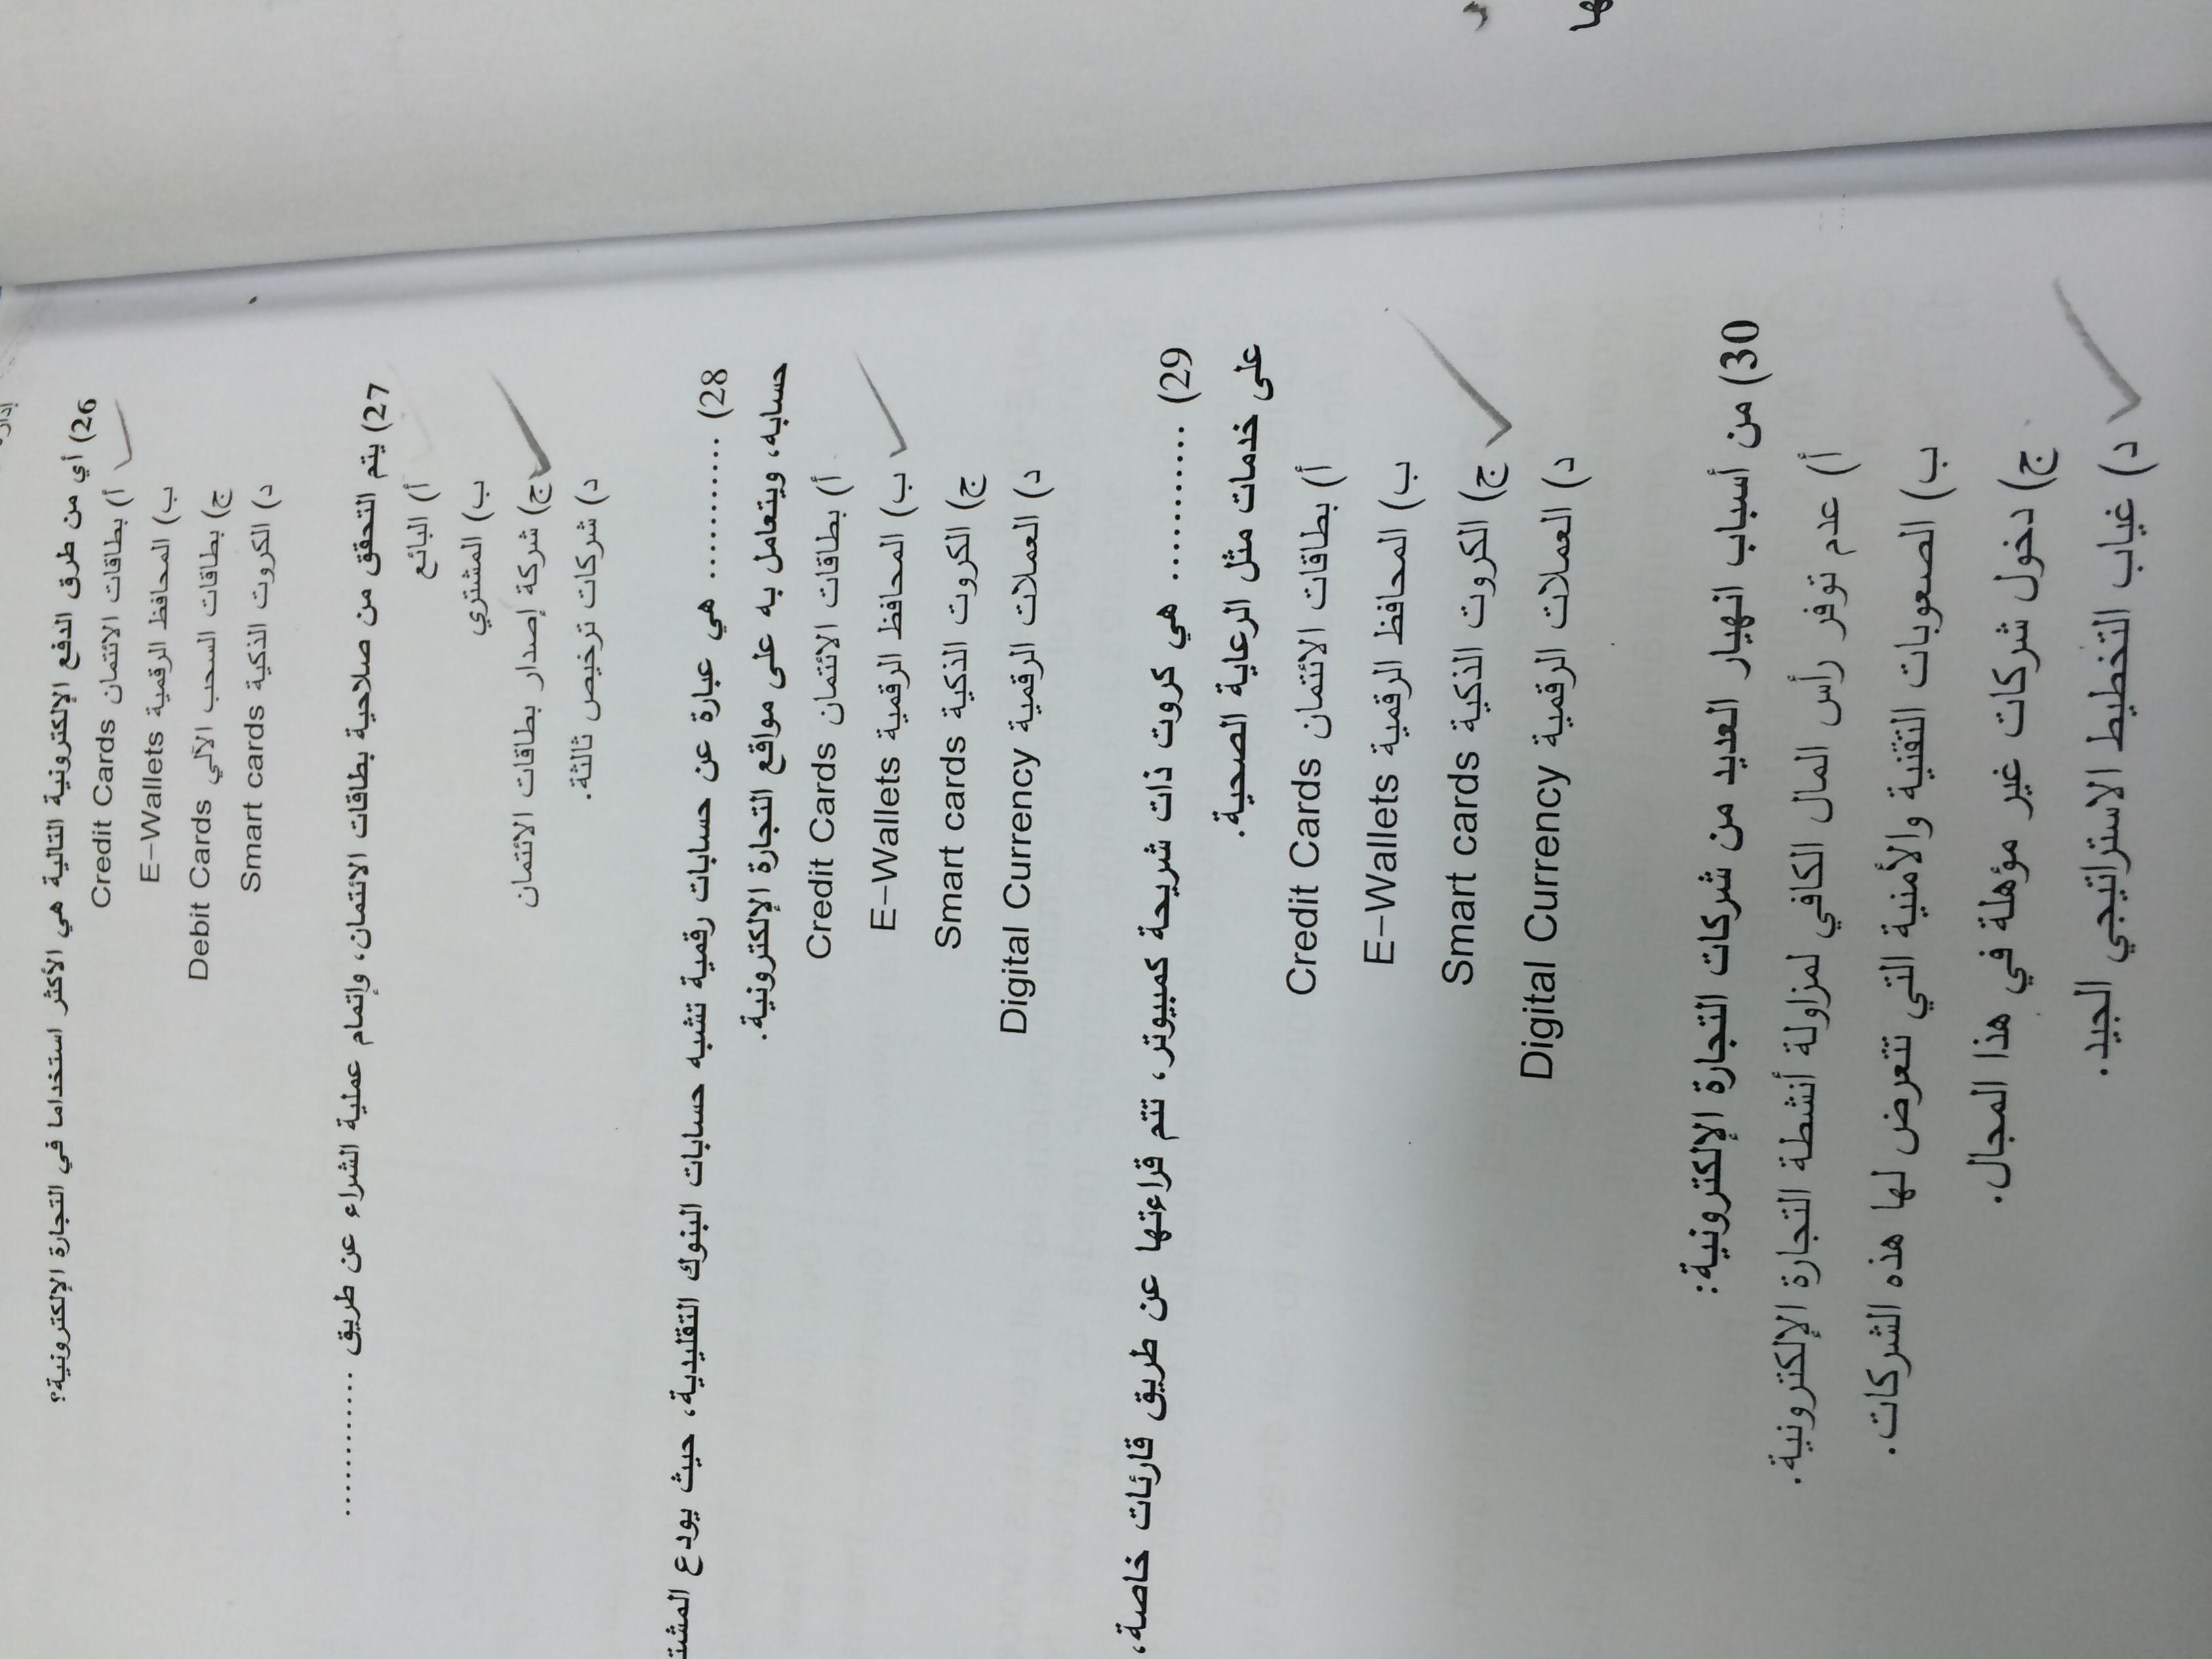 26) أي من طرق الدفع الإلكترونية التالية هي الأكثر استخداما في التجارة الإلكترونية؟
أ) بطاقات الائتمان Credit Cards
ب) المحافظ الرقمية E-Wallets
ج) بطاقات السحب الآلي Debit Cards
د) الكروت الذكية Smart cards
27) يتم التحقق من صلاحية بطاقات الائتمان، وإتمام عملية الشراء عن طريق ............
أ) البائع
ب) المشتري
ج) شركة إصدار بطاقات الائتمان
د) شركات ترخيص ثالثة.
28) ............ هي عبارة عن حسابات رقمية تشبه حسابات البنوك التقليدية، حيث يودع
حسابه، ويتعامل به على مواقع التجارة الإلكترونية.
أ) بطاقات الائتمان Credit Cards
ب) المحافظ الرقمية E-Wallets
ج) الكروت الذكية Smart cards
د) العملات الرقمية Digital Currency
29) ............ هي كروت ذات شريحة كمبيوتر، تتم قراءتها عن طريق قارئات خاصة،
على خدمات مثل الرعاية الصحية.
أ) بطاقات الائتمان Credit Cards
ب) المحافظ الرقمية E-Wallets
ج) الكروت الذكية Smart cards
د) العملات الرقمية Digital Currency
30) من أسباب انهيار العديد من شركات التجارة الإلكترونية:
أ) عدم توفر رأس المال الكافي لمزاولة أنشطة التجارة الإلكترونية.
ب) الصعوبات التقنية والأمنية التي تتعرض لها هذه الشركات.
ج) دخول شركات غير مؤهلة في هذا المجال.
د) غياب التخطيط الاستراتيجي الجيد.